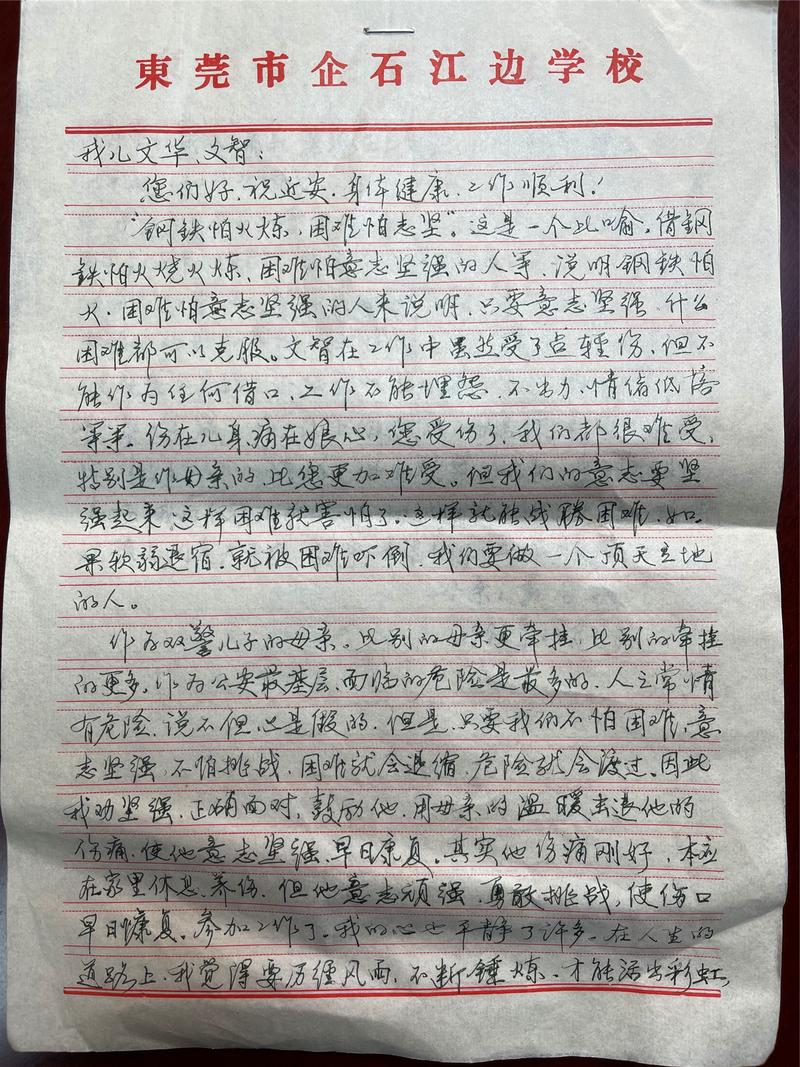 東莞市企石江边学校
我儿文华、文智：
您们好，祝近安，身体健康，工作顺利！
“钢铁怕火炼，困难怕志坚”。这是一个比喻，借钢
铁怕火烧火炼、困难怕意志坚强的人等，说明钢铁怕
火，困难怕意志坚强的人来说明，只要意志坚强，什么
困难都可以克服。文智在工作中虽然受了点轻伤，但不
能作为任何借口，工作不能埋怨，不出力，情绪低落
等等。伤在儿身，痛在娘心，您受伤了，我们都很难受，
特别是作母亲的，比您更加难受。但我们的意志要坚
强起来，这样困难就害怕了。这样就能战勝困难，如
果软弱退宿，就被困难吓倒，我们要做一个顶天立地
的人。
作为双警儿子的母亲。比别的母亲更牵挂，比别的牵挂
的更多。作为公安最基层，面临的危险是最多的，人之常情
有危险，说不但心是假的，但是，只要我们不怕困难，意
志坚强，不怕挑战，困难就会退缩，危险就会渡过。因此
我劝坚强，正确面对，鼓励他，用母亲的温暖去退他的
伤痛，使他意志坚强，早日康复。其实他伤痛刚好，本应
在家里休息、养伤，但他意志顽强，勇敢挑战，使伤口
早日康复。参加工作了。我的心也平静了许多。在人生的
道路上，我觉得要历经风雨，不断锤炼，才能活出彩虹，